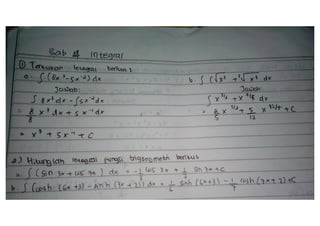 Bab 4 Integral
1) Tentukan integral berikut :
a. ∫ (8x⁷ - 5x⁻²) dx
Jawab:
∫ 8x⁷ dx - ∫ 5x⁻² dx
= 8/8 x⁸ dx + 5x⁻¹ dx
= x⁸ + 5x⁻¹ + C
b. ∫
Jawab
∫ x
+ C
2.) Hitunglah integral fungsi trigonometri berikut
a. ∫ (sin 3x + cos 7x) dx = -1/3 cos 3x + 1/7 sin 7x + C
b. ∫ (cosh (6x+3) - sinh (7x+2)) dx = 1/6 sinh (6x+3) - 1/7 cosh (7x+2) + C